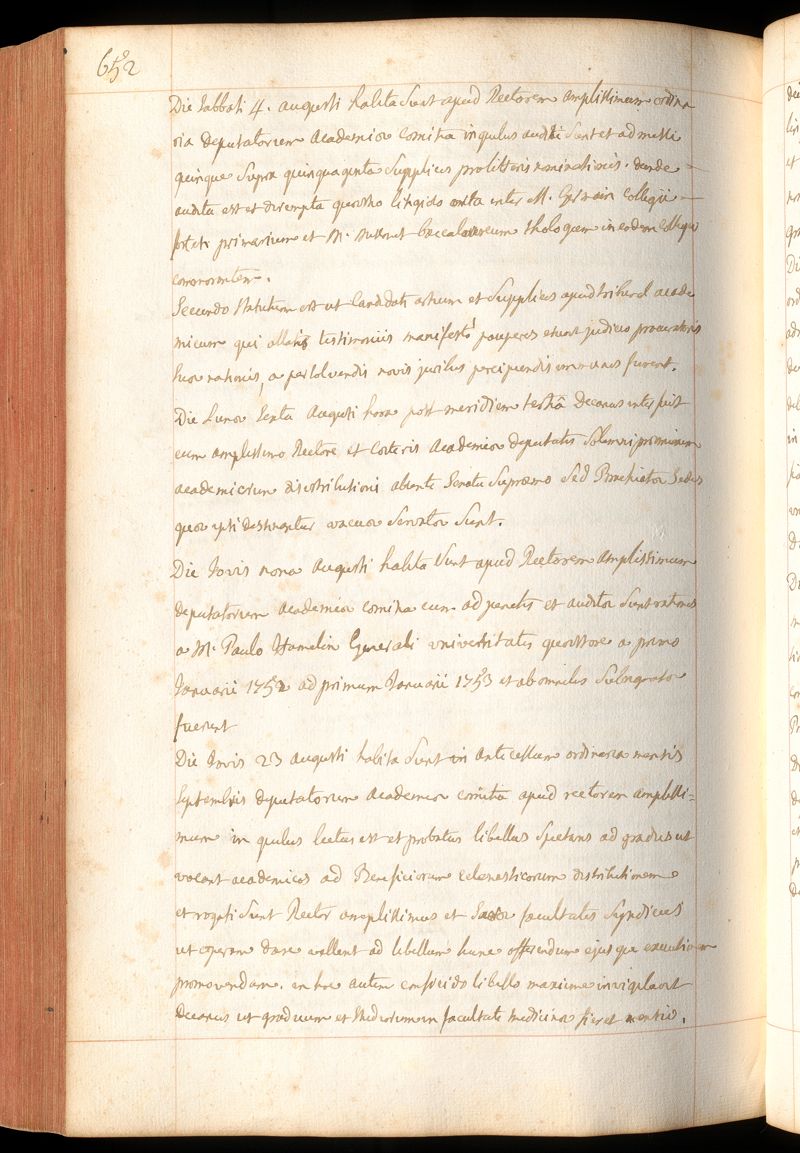 652
Die Sabbati 4. augusti habita sunt apud Rectorem amplissimum ordina
ria deputatorum academiæ comitia in quibus auditi sunt et admissi
quinque supra quinquaginta supplices pro litteris nominationis. deinde
audita est et dirempta quæstio litigiosa inter M. collegii
primarium et M. baccalaureum theologum in eodem collegio
commorantem.
Secundo statutum est ut candidati artium et supplices apud tribunal acade
micum qui allatis testimoniis manifestè pauperes erunt judicio procuratoris
suæ nationis, a persolvendis novis juribus percipiendis immunes fuerint.
Die Lunæ sexta augusti hora post meridiem tertiâ decanus interfuit
cum amplissimo Rectore et cæteris academiæ deputatis solemni præmiorum
academicorum distributioni absente senatu supremo sed sedes
quæ ipsi destinantur vacuæ servatæ sunt.
Die Jovis nona augusti habita sunt apud Rectorem amplissimum
deputatorum academiæ comitia cum adjunctis et auditæ sunt rationes
a M. Paulo Hamelin Generali universitatis quæstore a primo
Januarii 1752 ad primum Januarii 1753 et ab omnibus subsignatæ
fuerunt
Die Jovis 23 augusti habita sunt in antecessum ordinaria mensis
septembris deputatorum academiæ comitia apud rectorem amplissi=
mum in quibus lectus est et probatus libellus spectans ad gradus ut
vocant academicos ad Beneficiorum ecclesiasticorum distributionem
et rogati sunt Rector amplissimus et sacræ facultatis syndicus
ut operam dare vellent ad libellum hunc offerendum ejusque executionem
promovendam. in hoc autem conficiendo libello maxime invigilavit
decanus ut graduum et studiorum in facultate medicinæ fieret mentio.